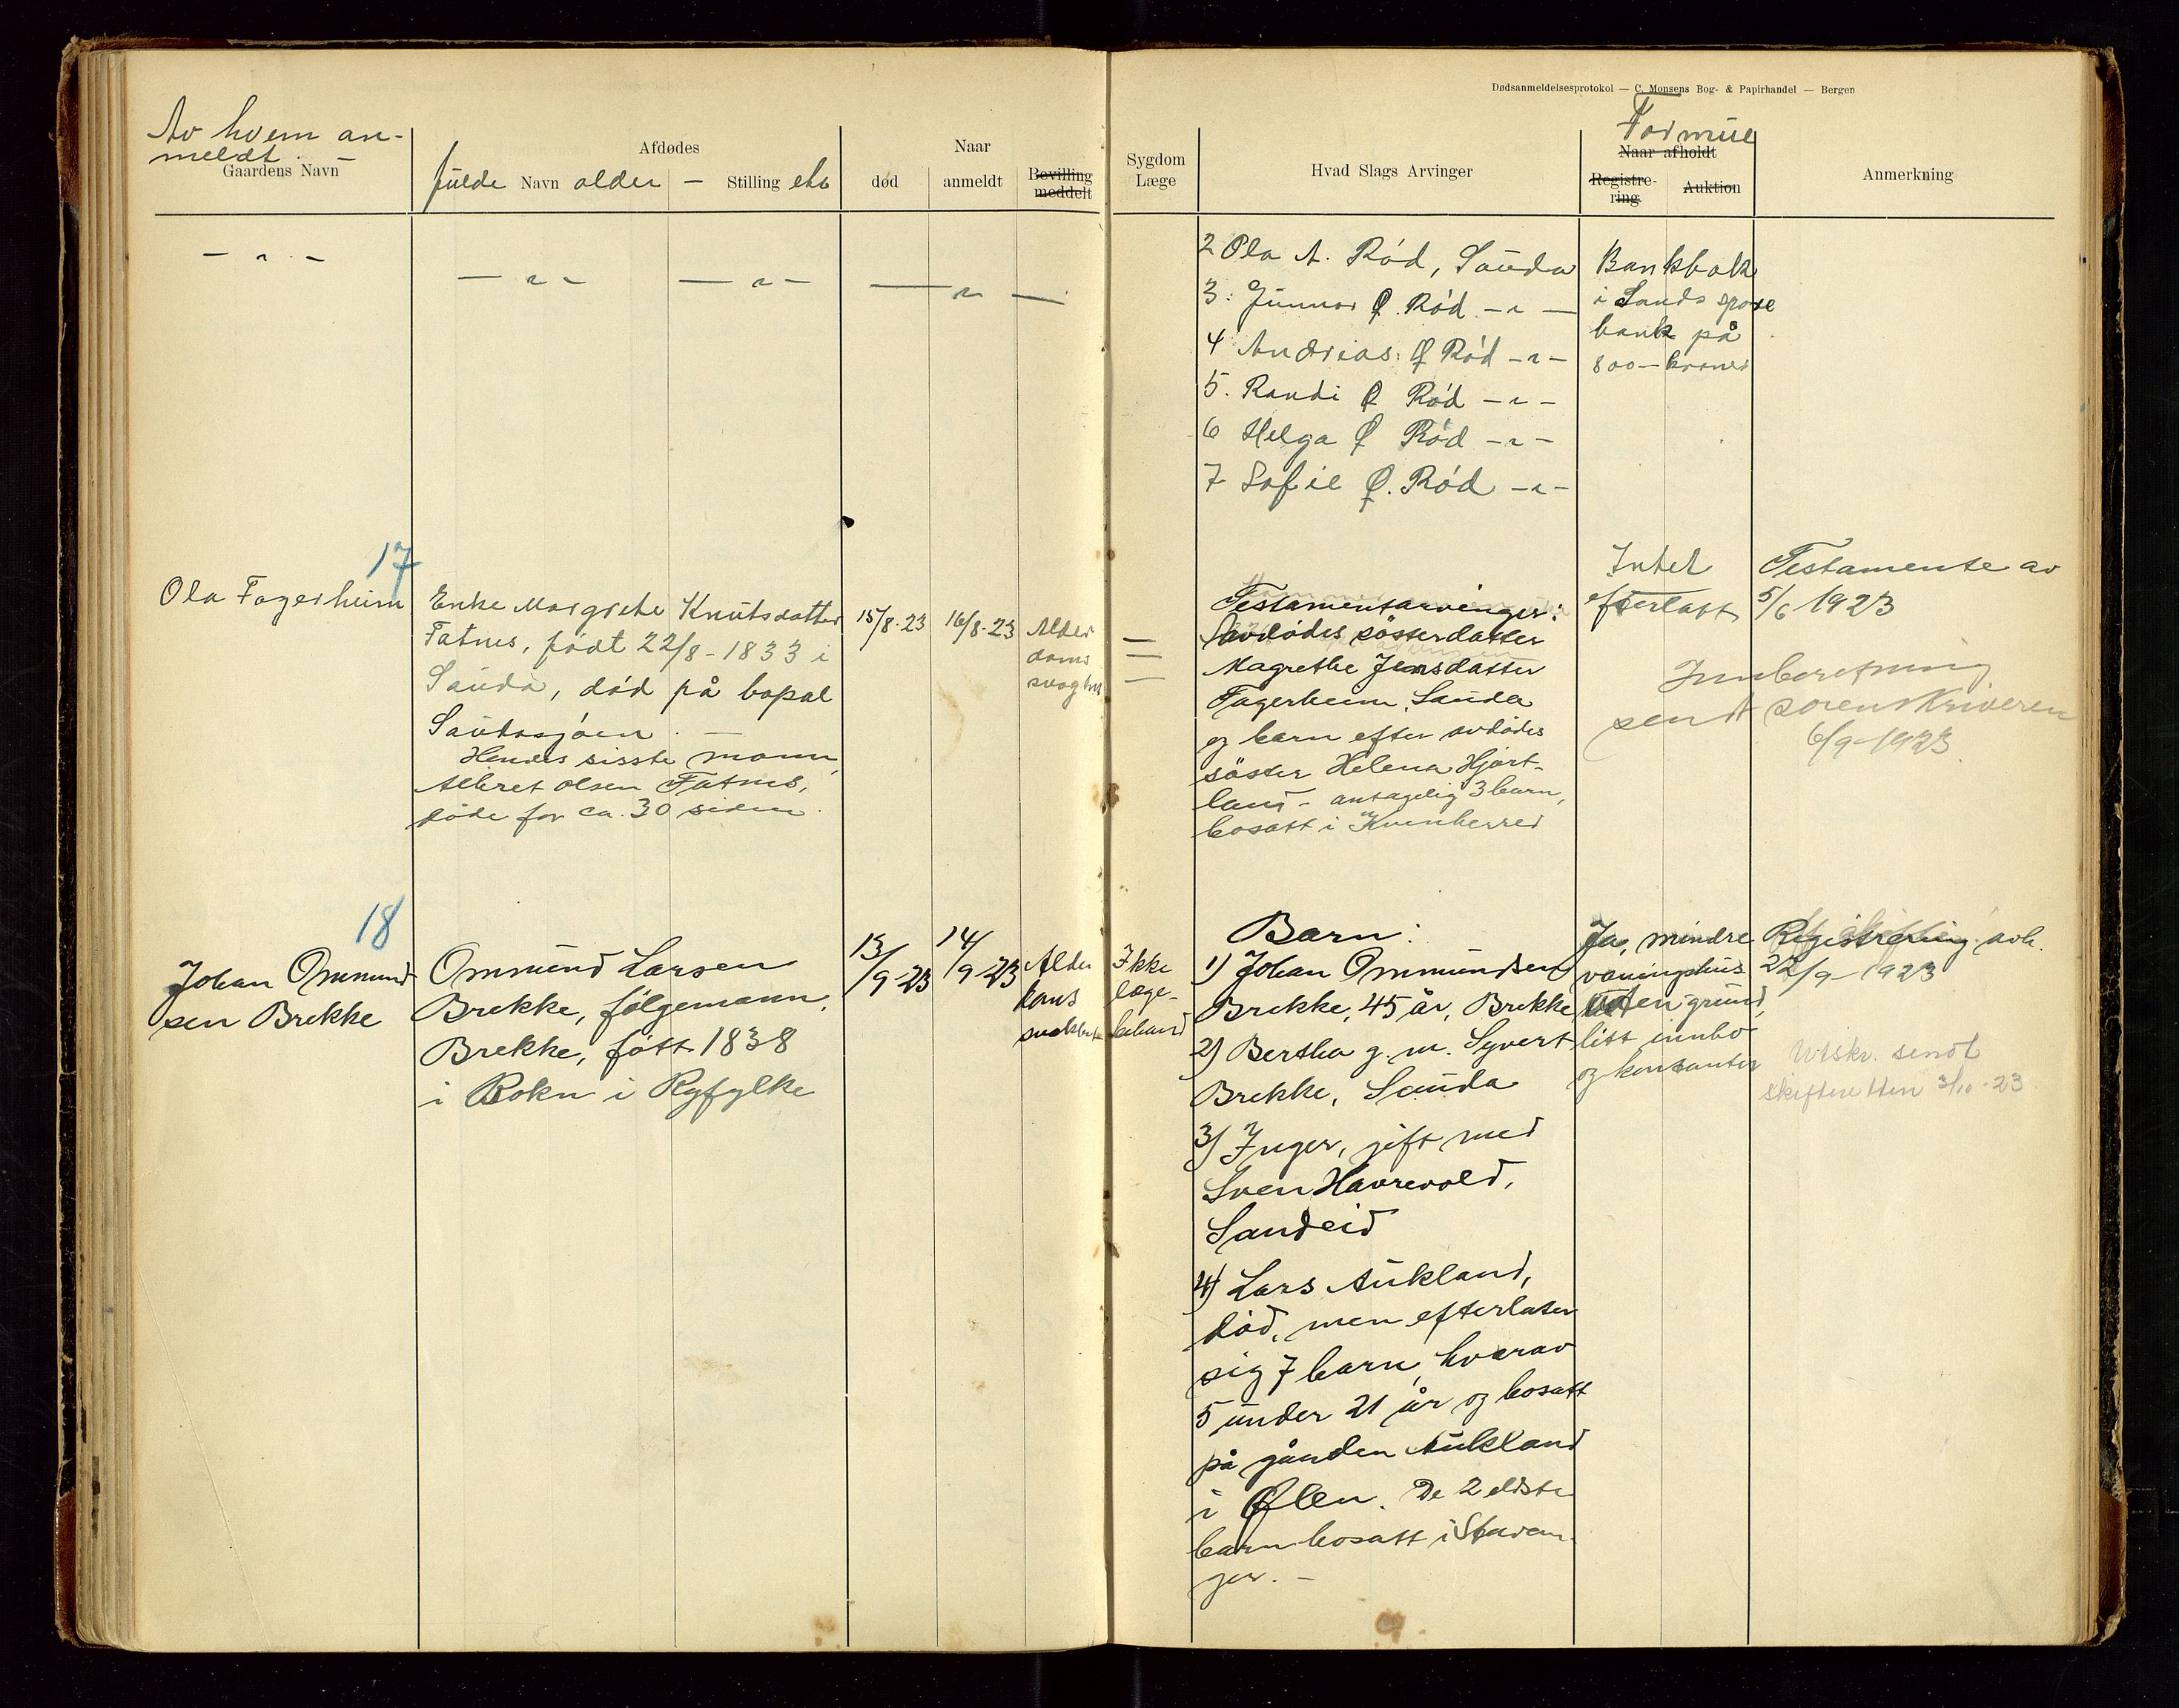 Dødsanmeldelsesprotokol — C. Monsens Bog- & Papirhandel — Bergen
Av hvem an-
meldt
Gaardens Navn
Afdødes
fulde Navn alder — Stilling etc
Naar
død
anmeldt
Bevilling
meddelt
Sygdom
Læge
Hvad Slags Arvinger
Formue
Naar afholdt
Registre-
ring
Auktion
Anmerkning
2 Ola A. Rød, Sauda
3. Gunnar Ø. Rød — " —
4 Andreas Ø Rød — " —
5. Randi Ø Rød — " —
6 Helga Ø Rød — " —
7 Sofie Ø. Rød — " —
Bankbok
i Sands spare
bank på
800 — kroner
17
Ola Fagerheim
Enke Margrete Knutsdatter
Fatnes, født 22/8 - 1833 i
Sauda, død på bopæl
Saudasjøen
Hendes sisste mann,
Albret Olsen Fatnes,
døde for ca. 30 siden
15/8-23
16/8-23
Alder
doms
svaghet
Testamentarvinger:
Avdødes søsterdatter
Magrethe Jensdatter
Fagerheim, Sauda
og barn efter avdødes
søster Helena Hjort-
land - antagelig 3 barn,
bosatt i Kvinherred
Intet
efterlatt
Testamente av
5/6 1923
Innberetning
sendt sorenskriveren
6/9-1923
18
Johan Ommund
sen Brekke
Ommund Larsen
Brekke, følgemann,
Brekke, født 1838
i Bokn i Ryfylke
13/9-23
14/9-23
Alder
doms
svakhet
Ikke
læge-
behand
Barn:
1) Johan Ommundsen
Brekke, 45 år, Brekke
2) Bertha g. m. Syvert
Brekke, Sauda
3) Inger, gift med
Sven Havrevold,
Sandeid
4) Lars Aukland,
død, men efterlater
sig 7 barn, hvorav
5 under 21 år og bosatt
på gården Aukland
i Ølen. De 2 eldste
barn bosatt i Stavan-
ger. —
Ja, mindre
våningshus
uten grund,
litt innbo
og kontanter
Registrering avh.
22/9-1923
Utskr. sendt
skifteretten 3/10-23